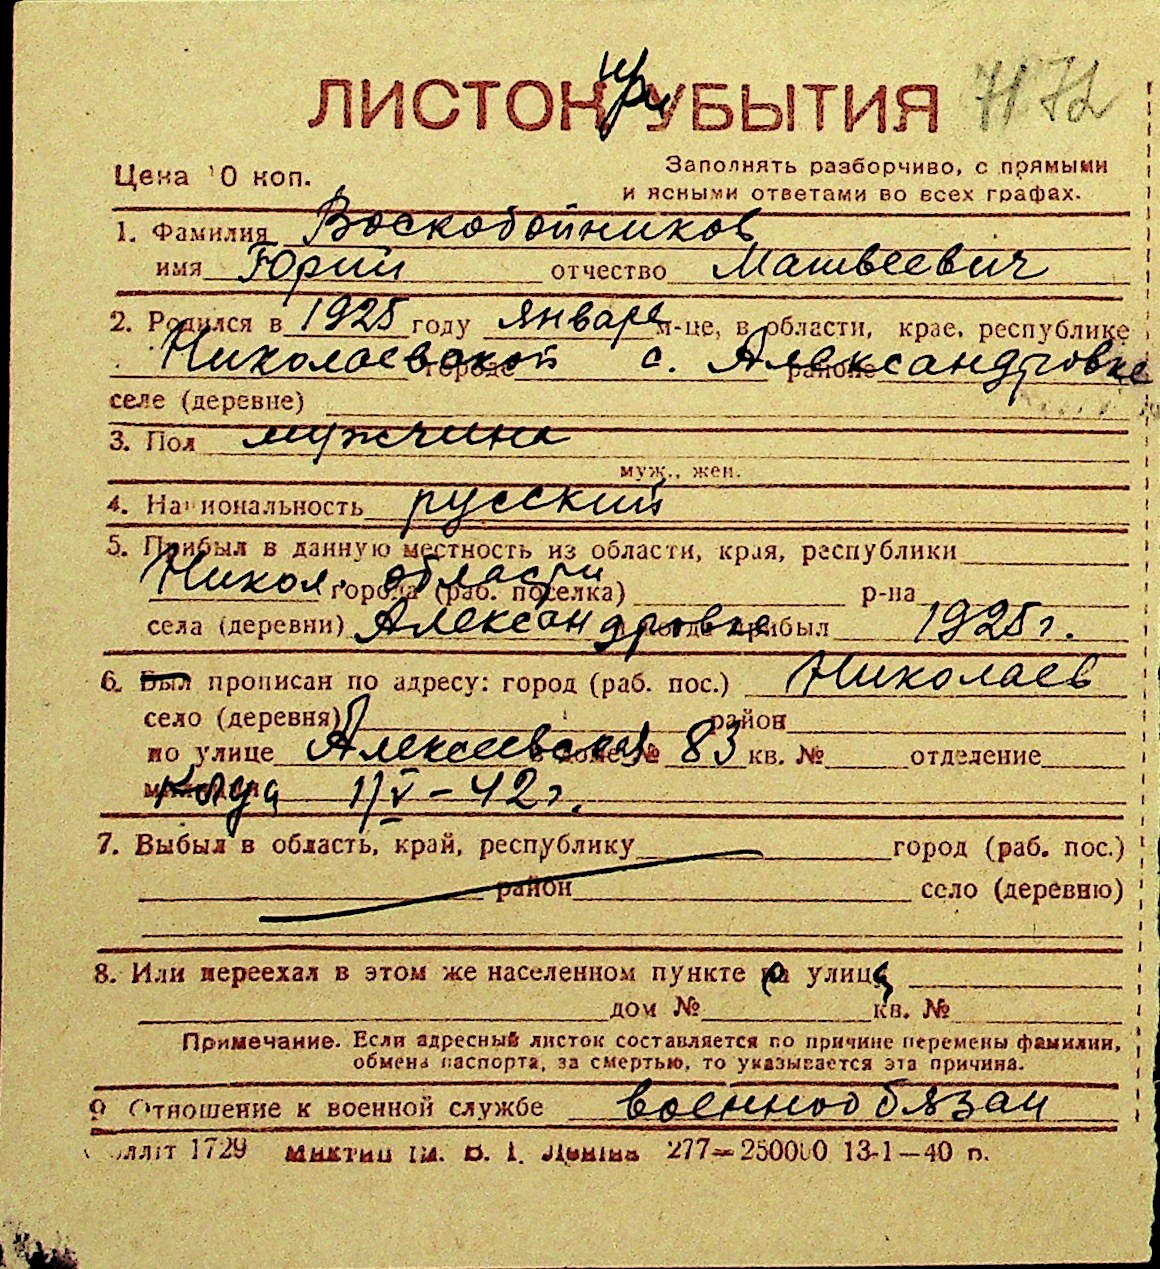 ЛИСТОК при УБЫТИЯ
Цена 10 коп.
Заполнять разборчиво, с прямыми
и ясными ответами во всех графах.
1. Фамилия Воскобойников
имя Юрий отчество Матвеевич
2. Родился в 1925 году январе м-це, в области, крае, республике
Николаевской городе с. районе Александровке
селе (деревне)
3. Пол мужчина
муж., жен.
4. Национальность русский
5. Прибыл в данную местность из области, края, республики
Никол. области города (раб. поселка) р-на
села (деревни) Александровке и когда прибыл 1925 г.
6. Был прописан по адресу: город (раб. пос.) Николаев
село (деревня) район
по улице Алексеевская дом № 83 кв. № отделение
милиции когда 1/V-42 г.
7. Выбыл в область, край, республику город (раб. пос.)
район село (деревню)
8. Или переехал в этом же населенном пункте на улицу
дом № кв. №
Примечание. Если адресный листок составляется по причине перемены фамилии,
обмена паспорта, за смертью, то указывается эта причина.
9 Отношение к военной службе военнообязан
1729 ім. В. І. Леніна 277—250000 13-1—40 п.